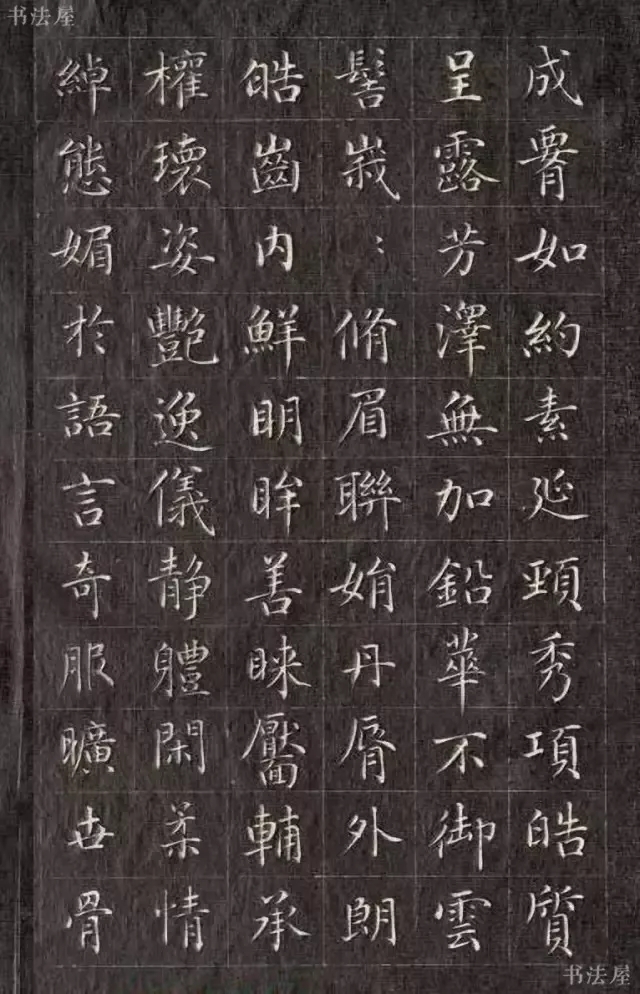 书法屋
成腰如約素延頸秀項皓質
呈露芳澤無加鉛華不御雲
髻峩〻脩眉聯娟丹脣外朗
皓齒内鮮明眸善睞靨輔承
權瓌姿豔逸儀静軆閑柔情
綽態媚於語言奇服曠世骨
书法屋